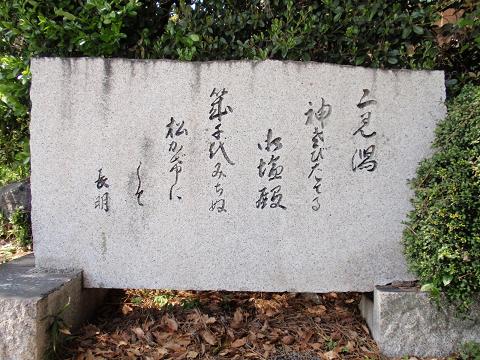 二見潟
神さびたてる
御塩殿
幾千代みちぬ
松かげに
して
長明